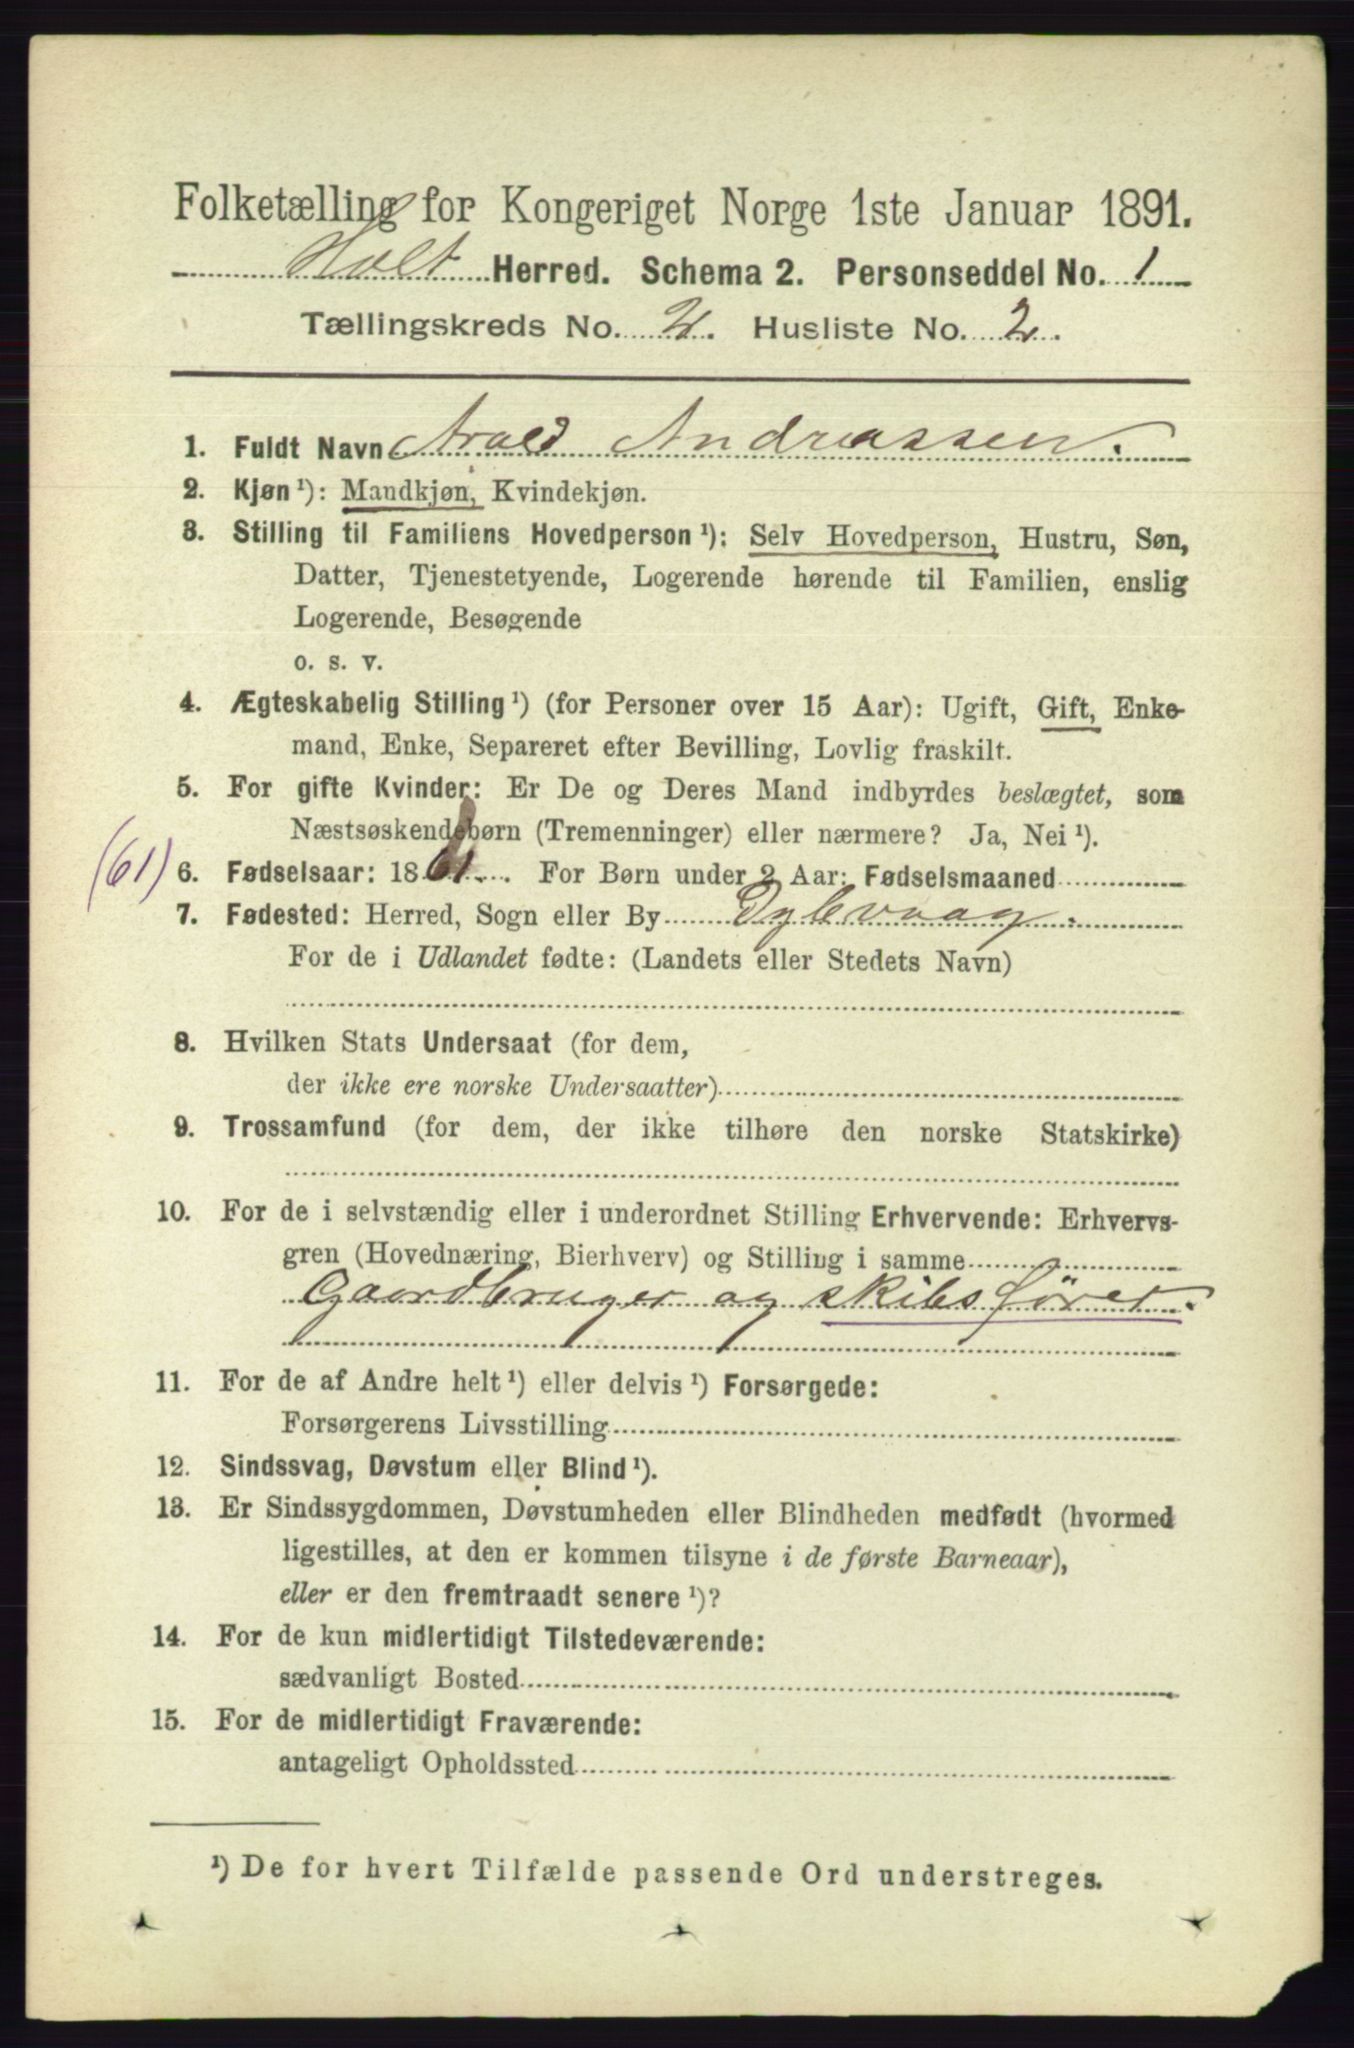 Folketælling for Kongeriget Norge 1ste Januar 1891.
Holt Herred. Schema 2. Personseddel No. 1
Tællingskreds No. 2. Husliste No. 2.
1. Fuldt Navn Arald Andreassen.
2. Kjøn ¹): Mandkjøn, Kvindekjøn.
3. Stilling til Familiens Hovedperson ¹): Selv Hovedperson, Hustru, Søn,
Datter, Tjenestetyende, Logerende hørende til Familien, enslig
Logerende, Besøgende
o. s. v.
4. Ægteskabelig Stilling ¹) (for Personer over 15 Aar): Ugift, Gift, Enke-
mand, Enke, Separeret efter Bevilling, Lovlig fraskilt.
5. For gifte Kvinder: Er De og Deres Mand indbyrdes beslægtet, som
Næstsøskendebørn (Tremenninger) eller nærmere? Ja, Nei ¹).
(61) 6. Fødselsaar: 1861. For Børn under 2 Aar: Fødselsmaaned
7. Fødested: Herred, Sogn eller By Dybvaag.
For de i Udlandet fødte: (Landets eller Stedets Navn)
8. Hvilken Stats Undersaat (for dem,
der ikke ere norske Undersaatter)
9. Trossamfund (for dem, der ikke tilhøre den norske Statskirke)
10. For de i selvstændig eller i underordnet Stilling Erhvervende: Erhvervs-
gren (Hovednæring, Bierhverv) og Stilling i samme
Gaardbruger og skibsfører.
11. For de af Andre helt ¹) eller delvis ¹) Forsørgede:
Forsørgerens Livsstilling
12. Sindssvag, Døvstum eller Blind ¹).
13. Er Sindssygdommen, Døvstumheden eller Blindheden medfødt (hvormed
ligestilles, at den er kommen tilsyne i de første Barneaar),
eller er den fremtraadt senere ¹)?
14. For de kun midlertidigt Tilstedeværende:
sædvanligt Bosted
15. For de midlertidigt Fraværende:
antageligt Opholdssted
¹) De for hvert Tilfælde passende Ord understreges.